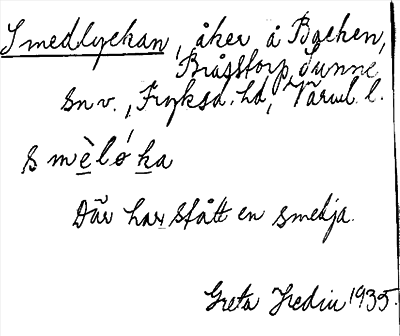 Smedlyckan, åker å Backen,
Bråstorp, Sunne
sn v., Fryksd. hd, Värml. l.
smὲlόka
Där har stått en smedja.
Greta Hedin 1935.